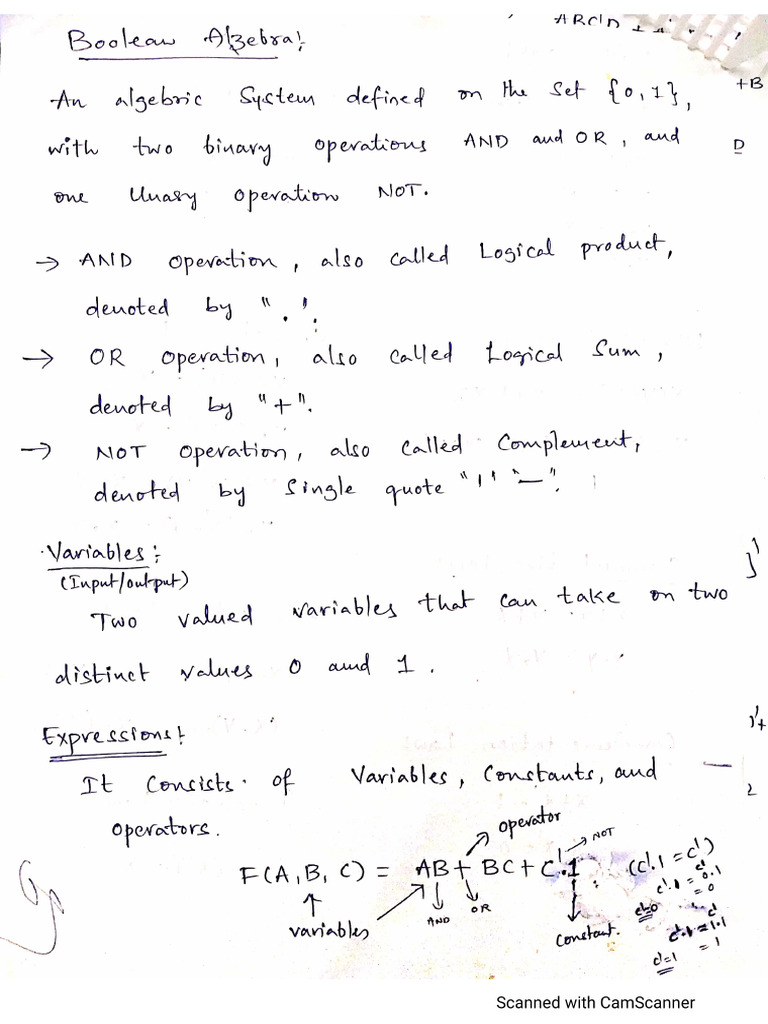 Boolean Algebra:
+B
An algebric System defined on the set {0,1},
with two binary operations AND and OR, and
D
one Unary operation NOT.
→ AND operation, also called Logical product,
denoted by ".".
→ OR operation, also called Logical Sum,
denoted by "+".
→ NOT operation, also called Complement,
denoted by single quote "'" "—".
Variables:
(Input/output)
Two valued variables that can take on two
distinct values 0 and 1.
Expressions:
It Consists of Variables, Constants, and
2
operators.
operator
NOT
F(A,B,C) = AB+ BC+C'.1 (C'.1=C')
AND
OR
variables
Constant.
C'.1 = 0.1
= 0
C'=0
C'.1=1.1
= 1
C'=1
Scanned with CamScanner